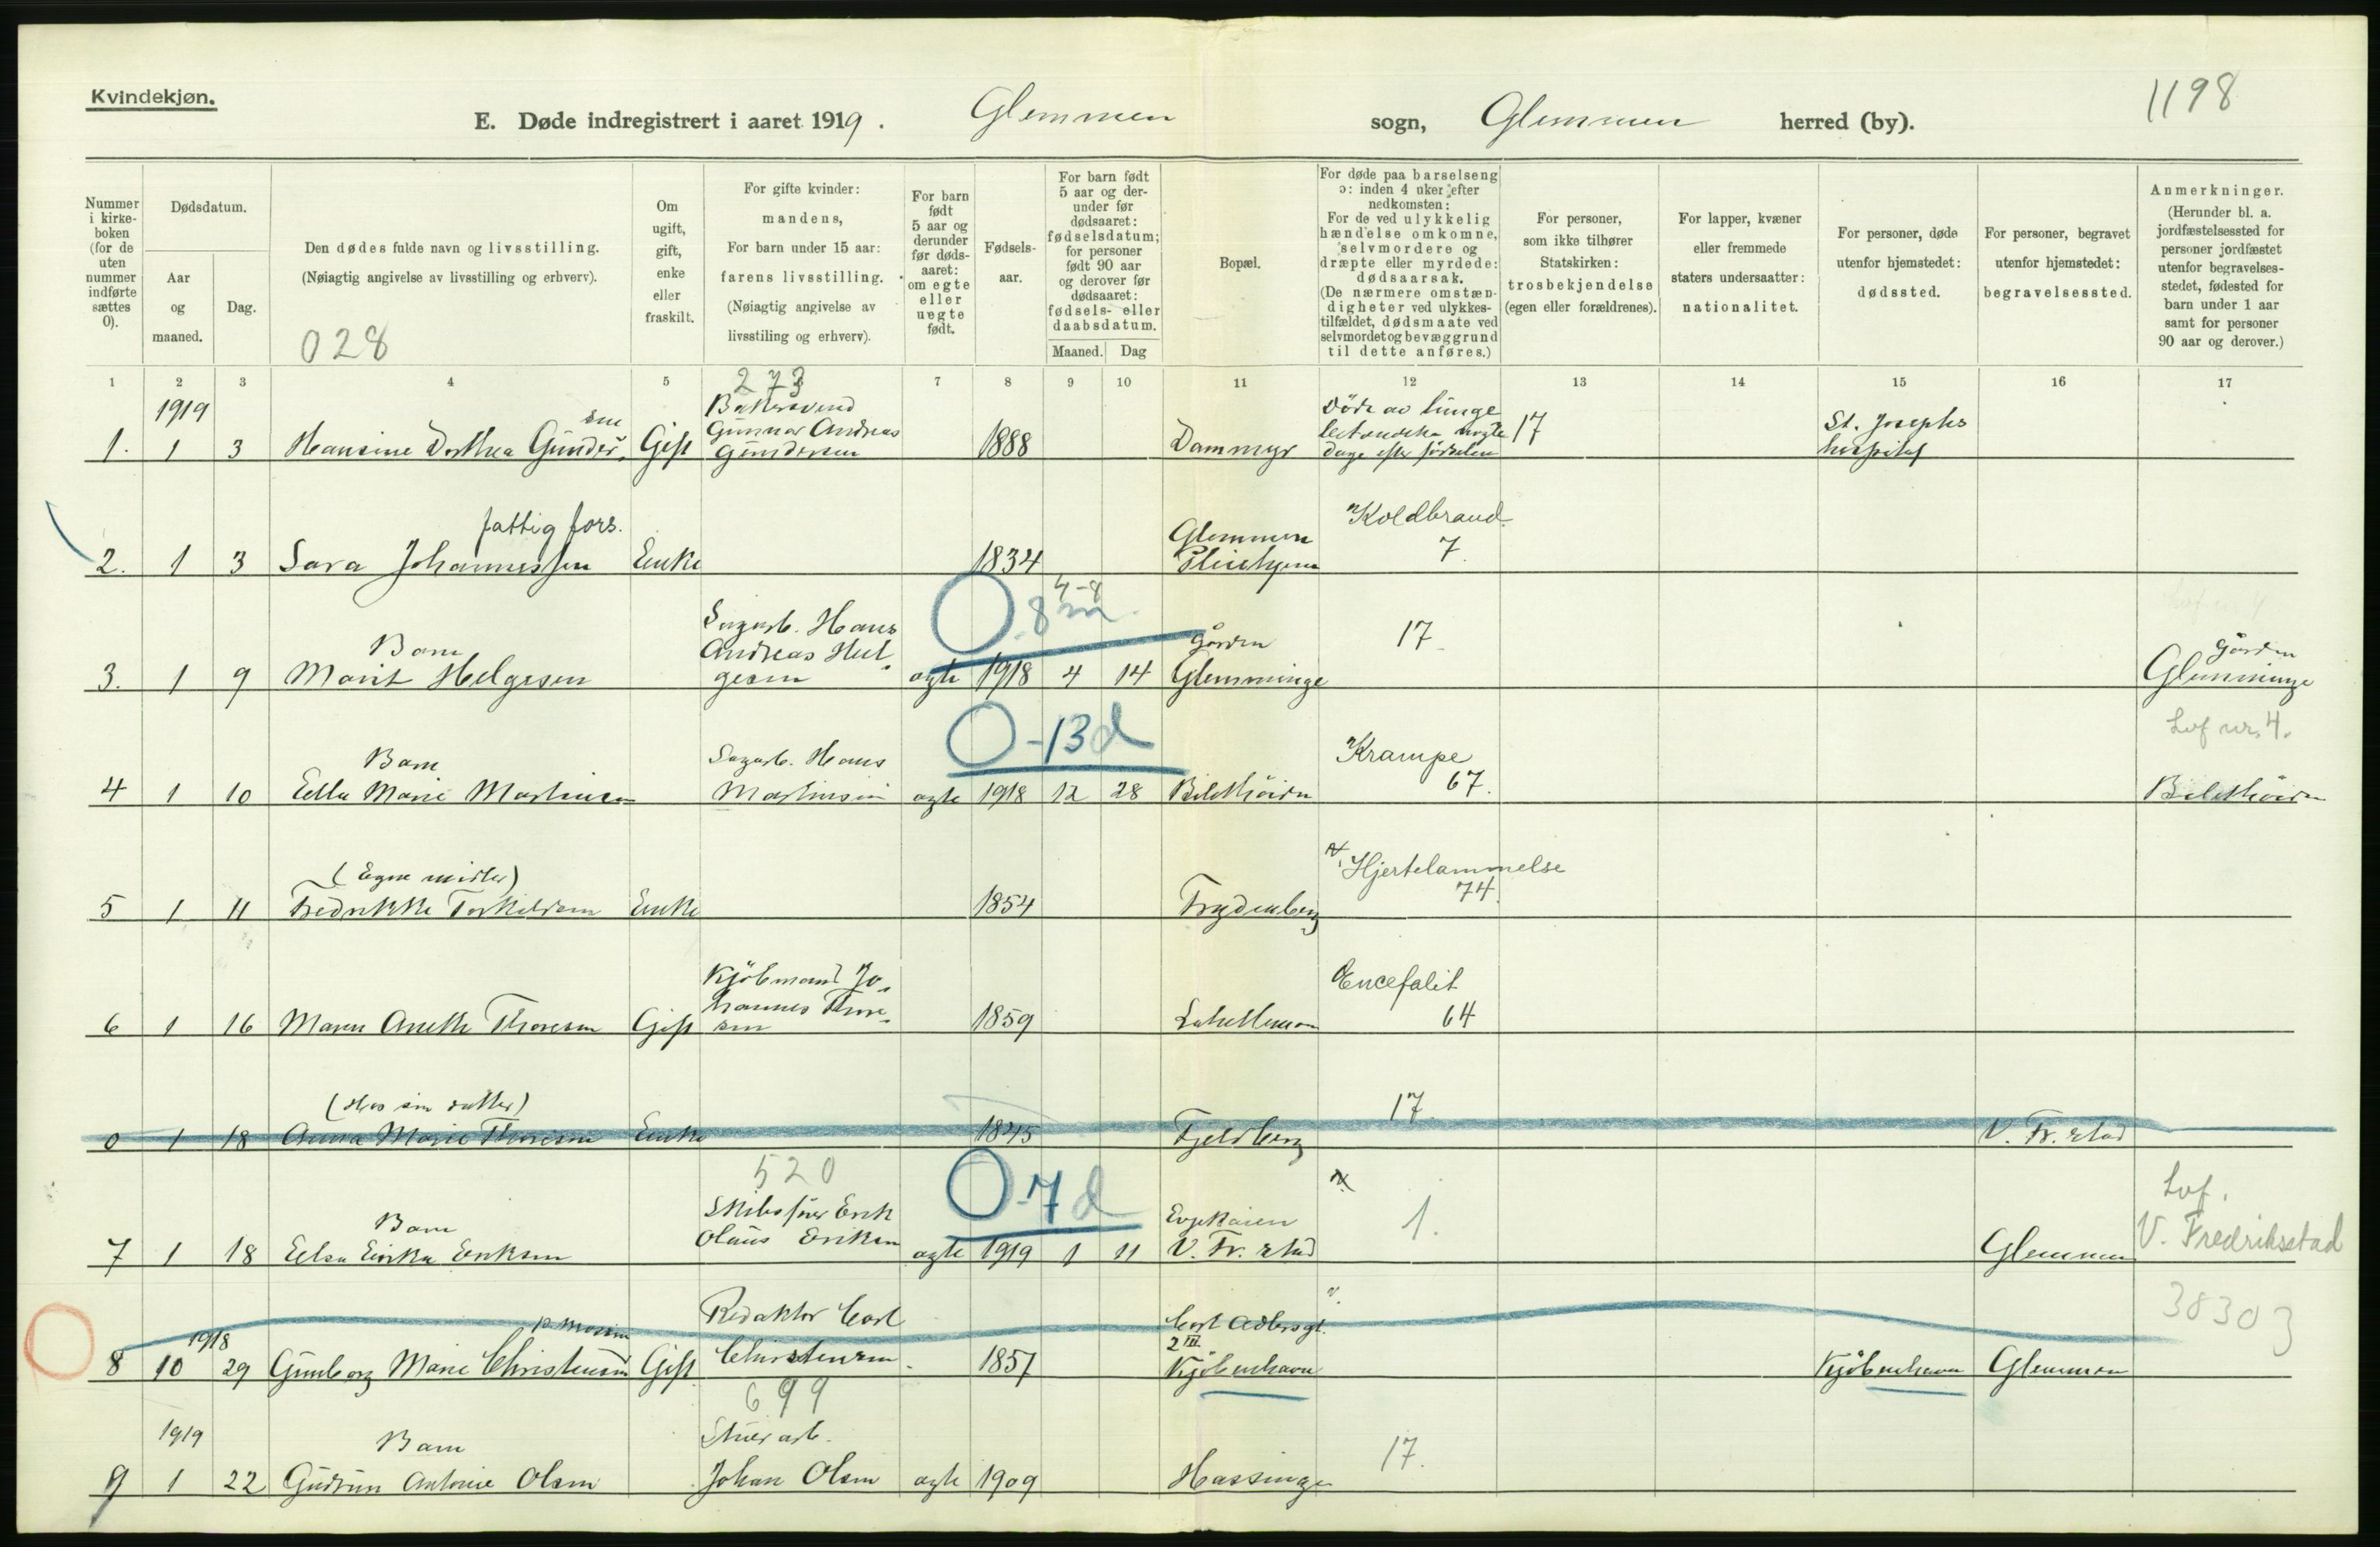 Kvindekjøn.
1198
E. Døde indregistrert i aaret 1919. Glemmen sogn, Glemmen herred (by).
Nummer i kirke-boken (for de uten nummer indførte sættes 0).
Dødsdatum.
Aar og maaned.
Dag.
Den dødes fulde navn og livsstilling.
(Nøiagtig angivelse av livsstilling og erhverv).
028
Om ugift, gift, enke eller fraskilt.
For gifte kvinder:
mandens,
For barn under 15 aar:
farens livsstilling.
(Nøiagtig angivelse av
livsstiling og erhverv).
For barn født 5 aar og derunder før døds-aaret: om egte eller uegte født.
Fødsels-aar.
For barn født 5 aar og der-under før dødsaaret: fødselsdatum; for personer født 90 aar og derover før dødsaaret: fødsels- eller daabsdatum.
Maaned. Dag
Bopæl.
For døde paa barselseng
ɔ: inden 4 uker efter
nedkomsten:
For de ved ulykkelig
hændelse omkomne,
selvmordere og
dræpte eller myrdede:
dødsaarsak.
(De nærmere omstæn-
digheter ved ulykkes-
tilfældet, dødsmaate ved
selvmordet og bevæggrund
til dette anføres.)
For personer,
som ikke tilhører
Statskirken:
trosbekjendelse
(egen eller forældrenes).
For lapper, kvæner
eller fremmede
staters undersaatter:
nationalitet.
For personer, døde
utenfor hjemstedet:
dødssted.
For personer, begravet
utenfor hjemstedet:
begravelsessted.
Anmerkninger.
(Herunder bl. a.
jordfæstelsessted for
personer jordfæstet
utenfor begravelses-
stedet, fødested for
barn under 1 aar
samt for personer
90 aar og derover.)
1 2 3 4 5 6 7 8 9 10 11 12 13 14 15 16 17
1919 273
1. 1 3 Hansine Dorthea Gunder sen Gift Bakersvend Gunnar Andreas Gundersen 1888 Dammyr Döde av lunge dage efter fødselen 17 St. Josephs hospital
fattig fors.
2. 1 3 Sara Johannessen Enke 1834 Glemmen Pleiehjem Koldbrand. 7.
0. 8 m 4-8
3. 1 9 Barn Marit Helgesen Sagarb. Hans Andreas Helgesen ægte 1918 4 14 Gården Glemminge 17 Gården Glemminge
0-13d
4 1 10 Barn Ella Marie Martinsen Sagarb. Hans Martinsen ægte 1918 12 28 Krampe 67. Lof nr. 4.
5 1 11 (Egne midler) Fredrikke Torkildsen Enke 1854 Frydenberg Hjertelammelse 74.
6 1 16 Maren Anethe Thoresen Gift Kjöbmand Johannes Thoresen 1859 Encefalit 64
0 1 18 (Hos sin datter) Anna Marie Thoresen Enke 1845 Fjeldberg 17. V. Fr. stad
520 0-7d
7 1 18 Barn Elsa Erika Eriksen Skibsfører Erik Olaus Eriksen ægte 1919 1 11 V. Fr. stad 1. Glemmen Lof. V. Fredriksstad
1918
8 10 29 Gunborg Marie Christensen Gift Redaktør Carl Christensen 1857 Cort Adlersgt. 2 III Kjöbenhavn Kjöbenhavn Glemmen 38303
699
1919
9 1 22 Barn Gudrun Antonie Olsen Johan Olsen ægte 1909 Hassinge 17.